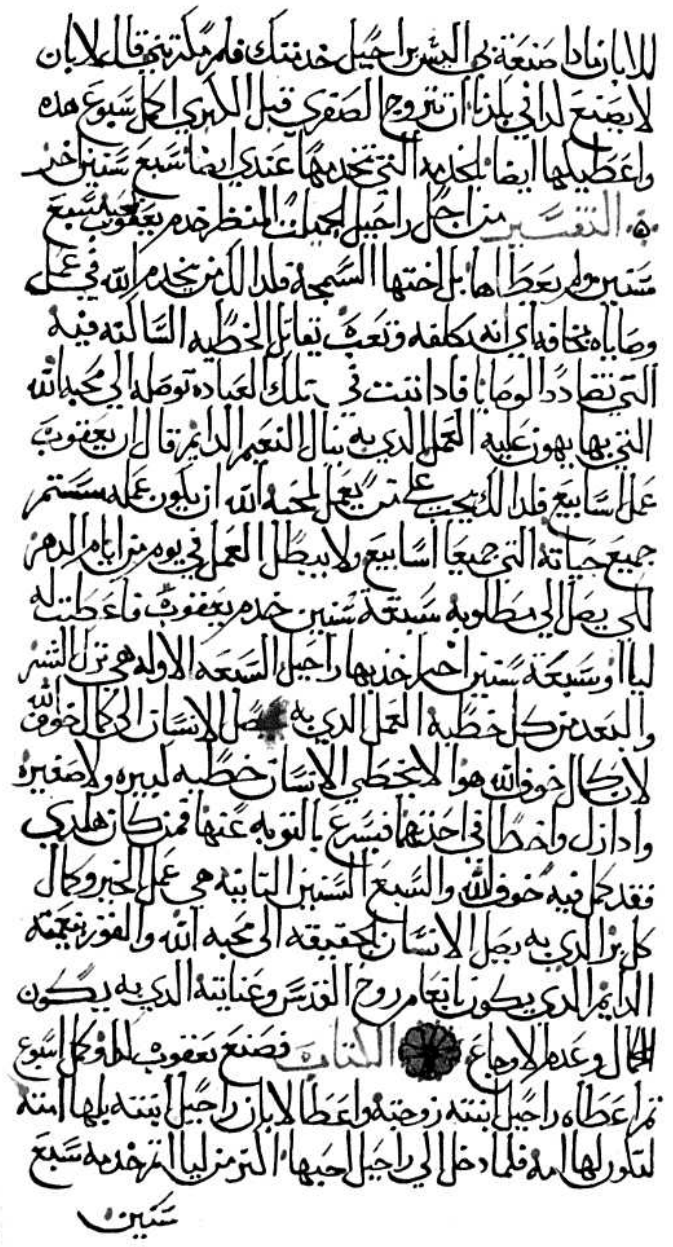 للابان ماذا صنعة بي اليس براحيل خدمتك فلم مكرة بي قال لابان
لا يصنع لدا في بلدنا ان تتزوج الصغري قبل الكبري اكمل سبوع هده
واعطيكها ايضا بالخدمه التي تخدمها عندي ايضا سبع سنين اخر
التفسير من اجل راحيل الجميلة المنظر خدم يعقوب سبع
سنين ولم يعطاها بل اختها السمجة فلدالك من يخدم الله في عمل
وصاياه بمخافه اي انه بكلفه وتعب يقاتل الخطيه الساكنه فيه
التي تضادد الوصايا فادا تبت في تلك العباده توصله الي محبه الله
التي بها يهون عليه العمل الدي به ينال النعيم الدايم قال ان يعقوب
عمل اسابيع فلدالك يجب علي من يعمل لمحبه الله ان يكون عمله مستمر
جميع حياته التي جميعا اسابيع ولا يبطل العمل في يوم من ايام الدهر
لكي يصل الي مطلوبه سبعة سنين خدم يعقوب فاعطت له
ليا وسبعة سنين اخر اخد بها راحيل السبعه الاوله هي ترك الشر
والبعد من كل خطيه العمل الدي به يصل الانسان الي كمال خوف الله
لان كمال خوف الله هو الا يخطي الانسان خطيه كبيره ولا صغيره
وادا زل واخطا في احدهما فيسرع بالتوبه عنها فمن كان هكدي
فقد كمل فيه خوف الله والسبع السنين التانيه هي عمل الخير وكمال
كل بر الدي به يصل الانسان بالحقيقه الي محبه الله والفوز بنعيمه
الدايم الدي يكون بانعام روح القدس وعنايته الدي به يكون
الكمال وعدم الاوجاع الكتاب فصنع يعقوب لدا وكمل اسبوع
تم اعطاه راحيل ابنته زوجته واعطا لابان راحيل ابنته بلها امته
لتكون لها امه فلما دخل الي راحيل احبها اكتر من ليا تم خدمه سبع
سنين